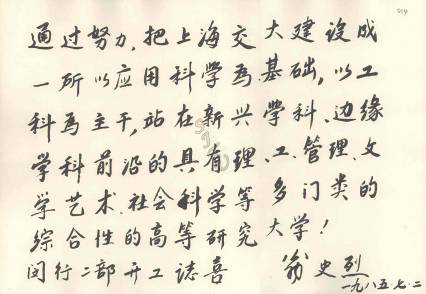 通过努力,把上海交大建设成
一所以应用科学為基础,以工
科為主干,站在新兴学科、边缘
学科前沿的具有理、工、管理、文
学艺术、社会科学等多门类的
综合性的高等研究大学!
闵行二部开工誌喜
翁史烈
一九八五.七.二